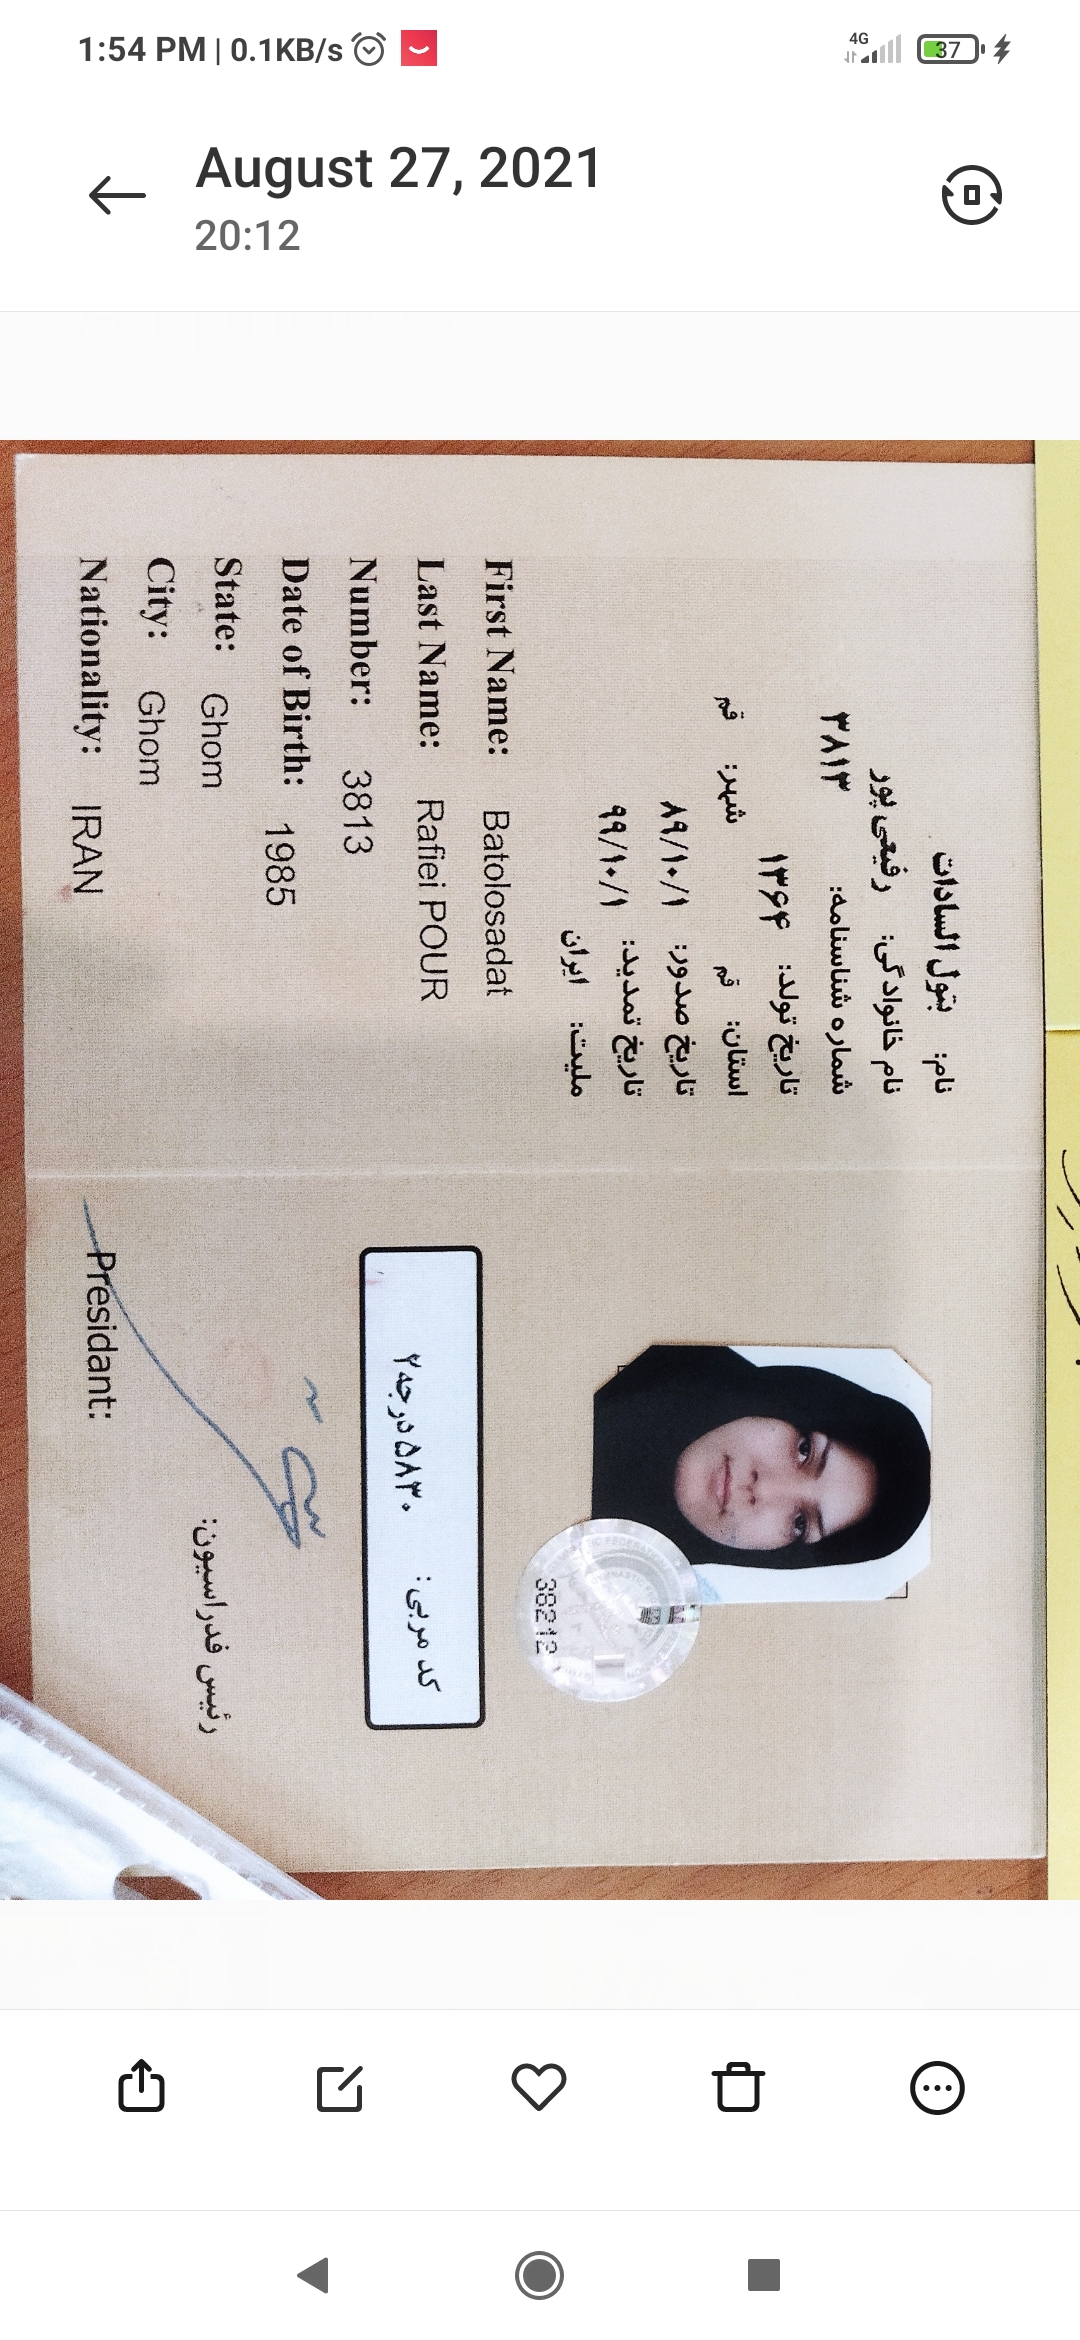 1:54 PM | 0.1KB/s
4G
37
August 27, 2021
20:12
نام: بتول السادات
نام خانوادگی: رفیعی پور
شماره شناسنامه: ۳۸۱۳
تاریخ تولد: ۱۳۶۴
استان: قم شهر: قم
تاریخ صدور: ۸۹/۱۰/۱
تاریخ تمدید: ۹۹/۱۰/۱
ملیت: ایران
First Name: Batolosadat
Last Name: Rafiei POUR
Number: 3813
Date of Birth: 1985
State: Ghom
City: Ghom
Nationality: IRAN
38212
کد مربی: ۵۸۳۰ درجه ۲
رئیس فدراسیون:
Presidant: